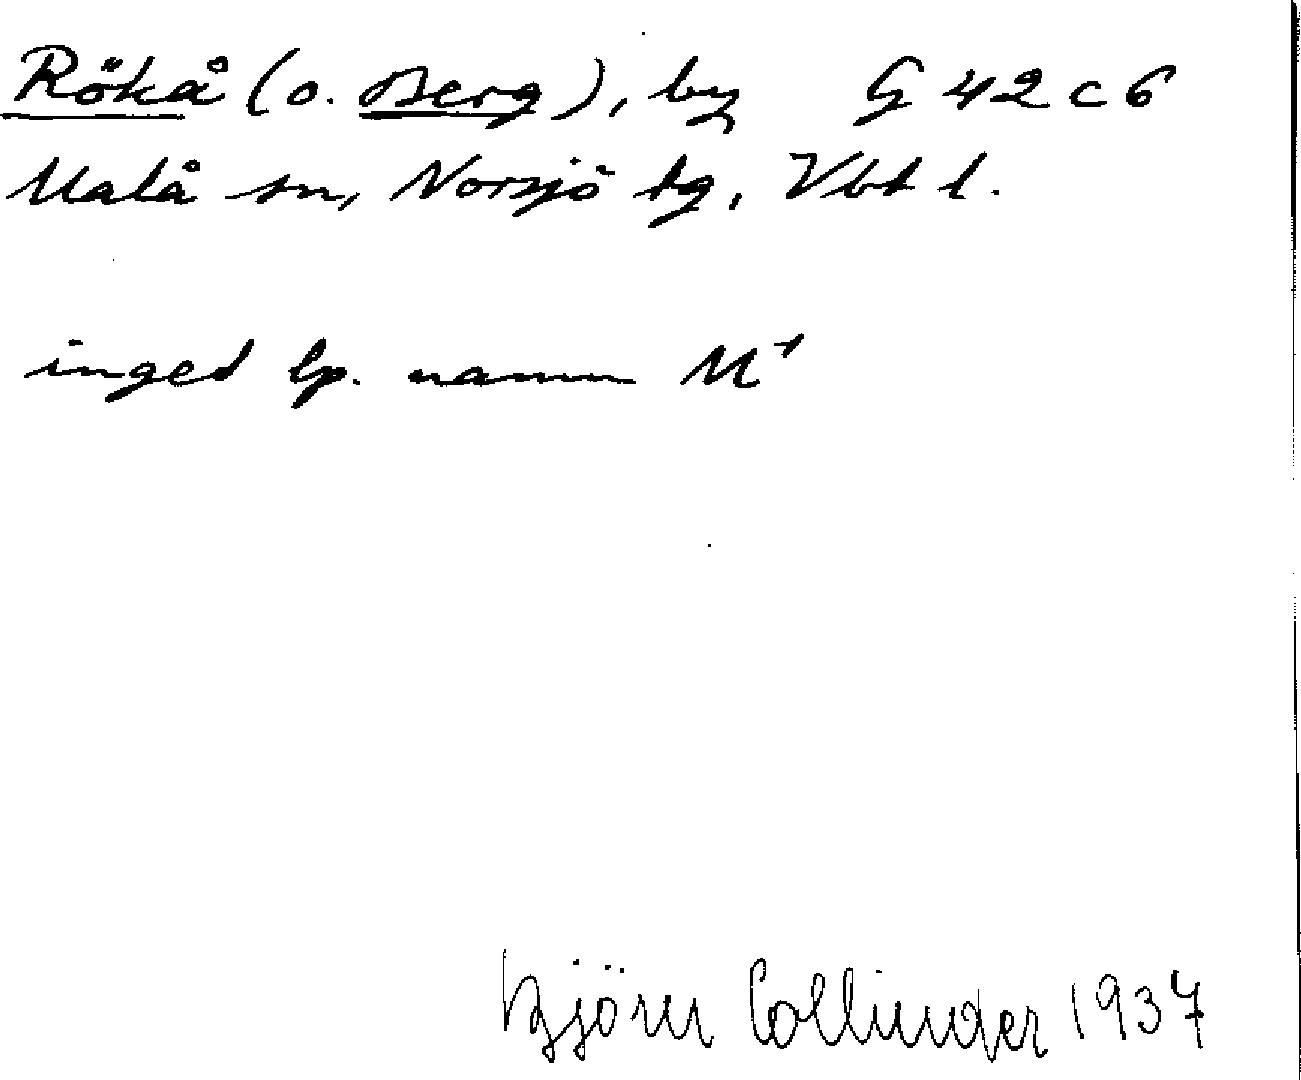 Rökå (o. Berg), by G 42 c 6
Malå sn, Norsjö tg, Vbt l.
inget lp. namn M¹
Björn Collinder 1937